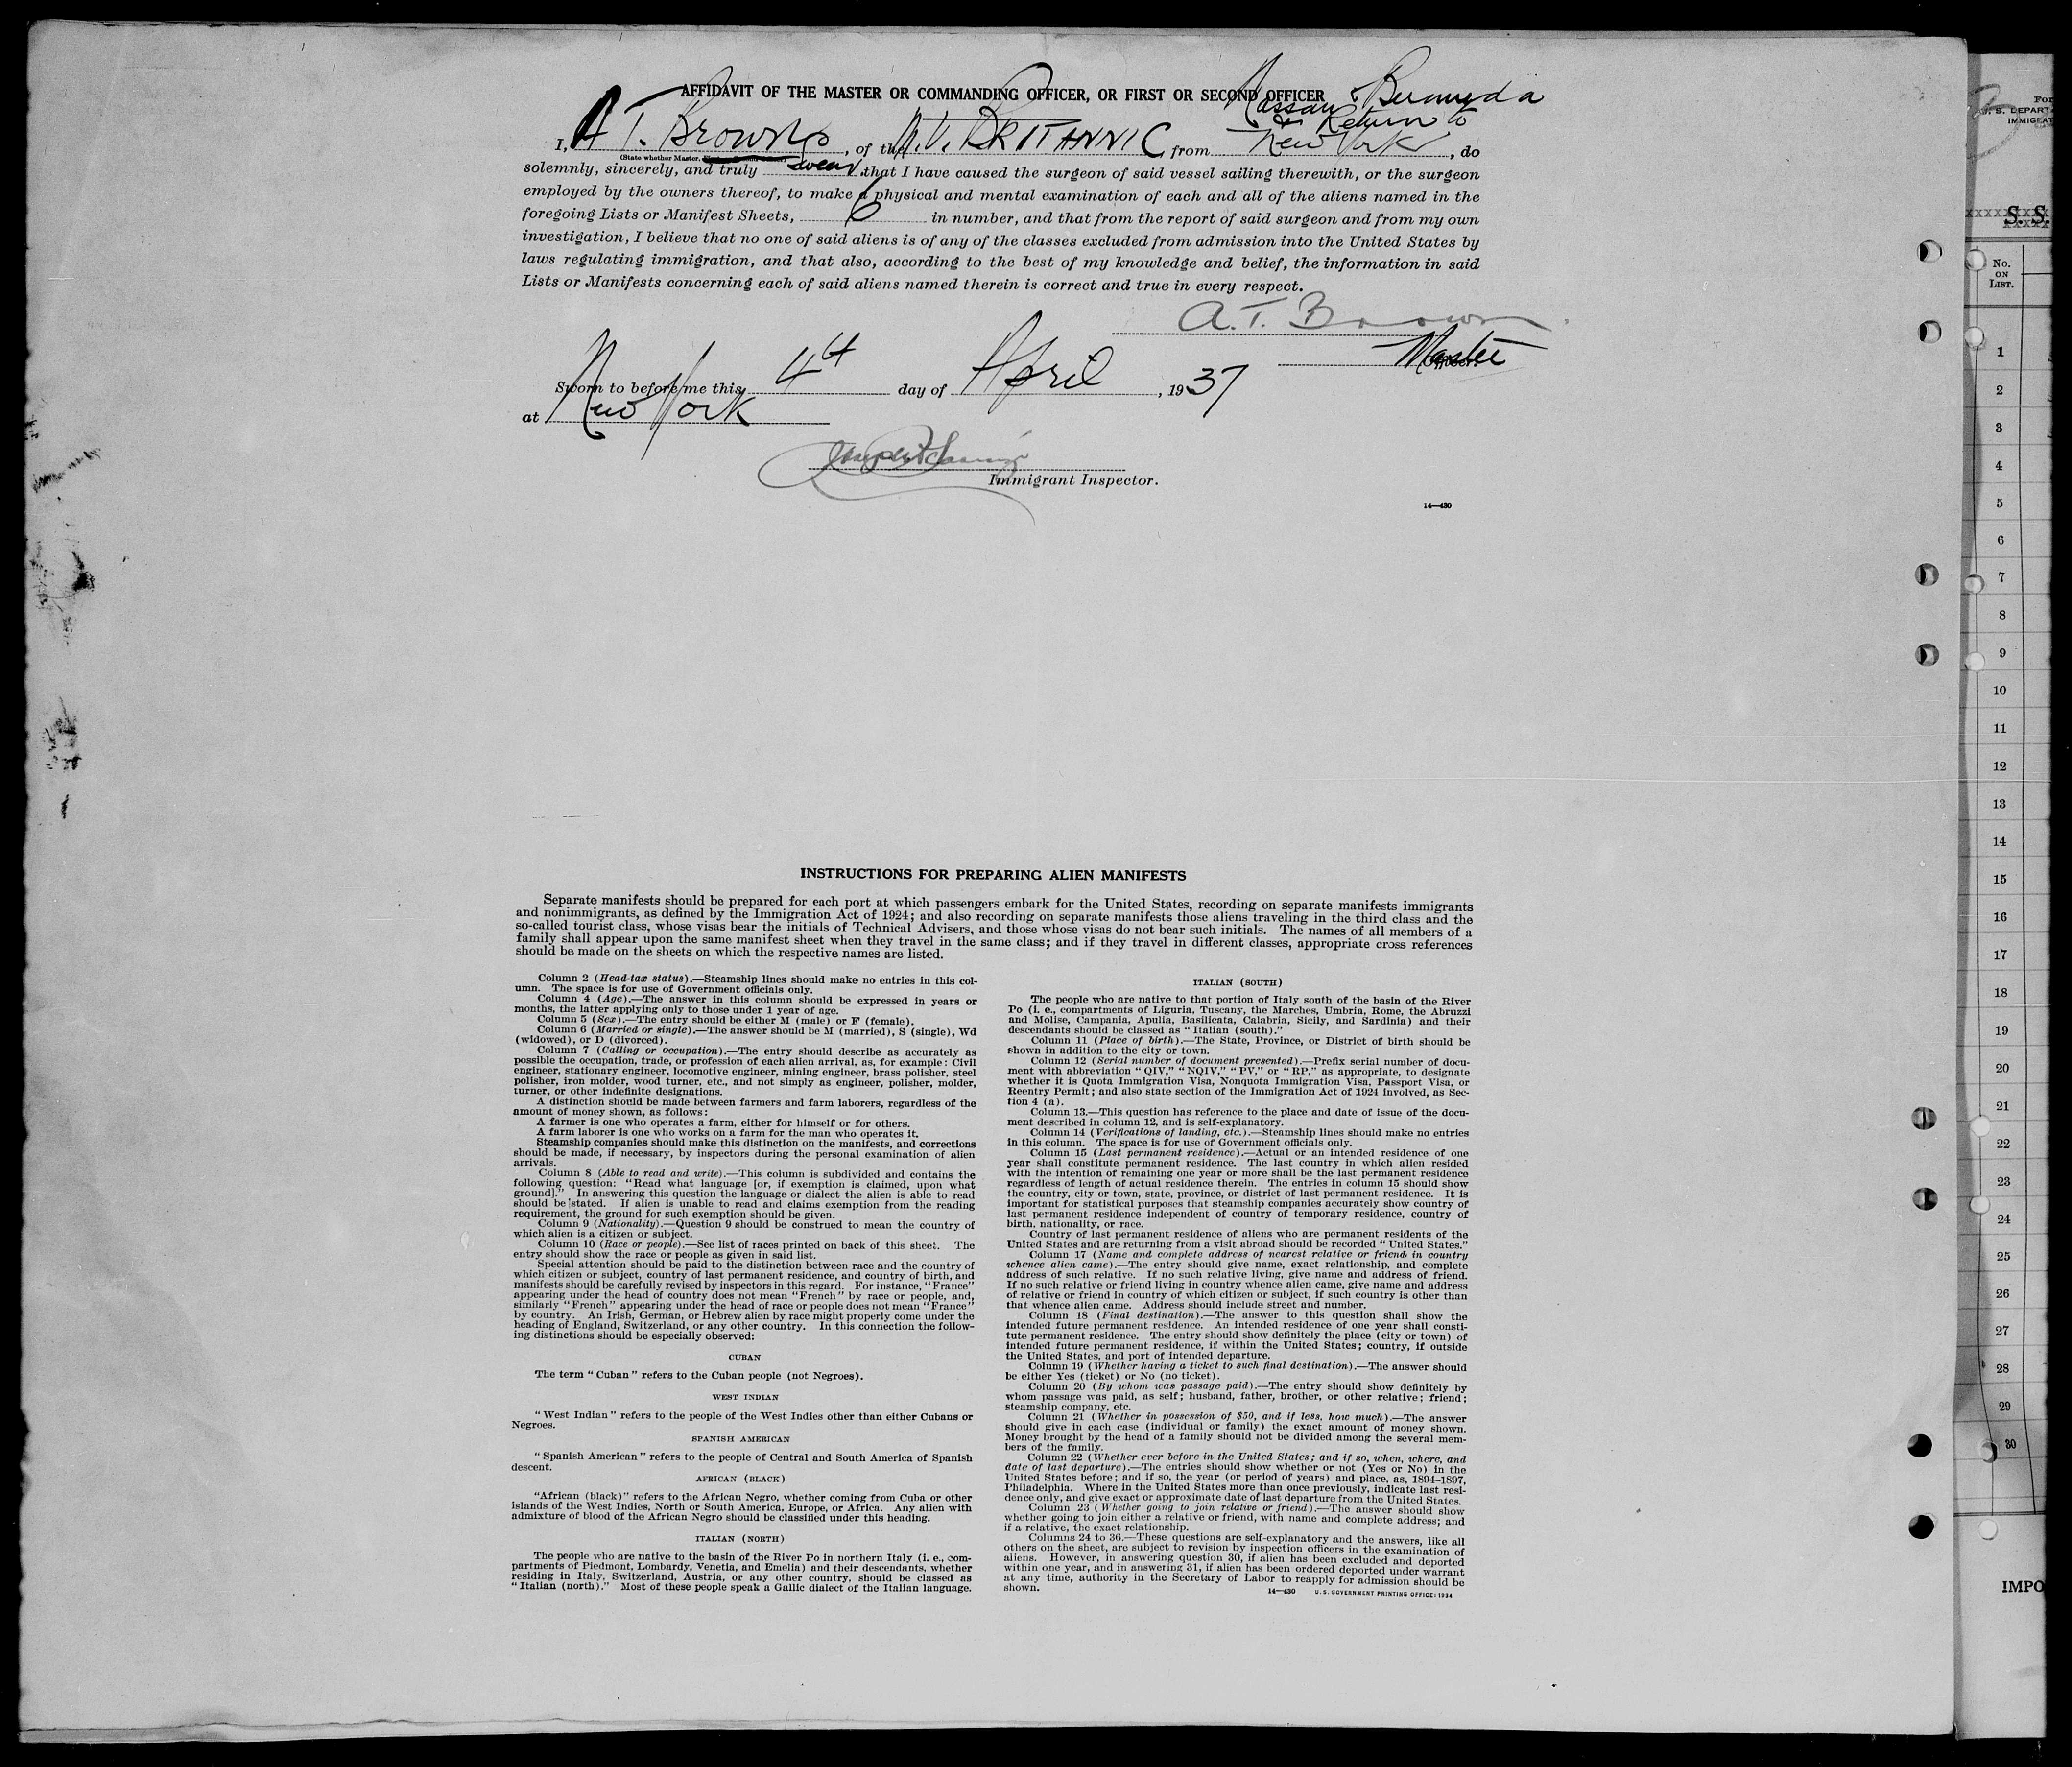 AFFIDAVIT OF THE MASTER OR COMMANDING OFFICER, OR FIRST OR SECOND OFFICER
Nassau & Bermuda
& Return to
I, A T. Brown, of the M.V. BRITANNIC, from New York, do
(State whether Master,
solemnly, sincerely, and truly swear that I have caused the surgeon of said vessel sailing therewith, or the surgeon
employed by the owners thereof, to make a physical and mental examination of each and all of the aliens named in the
foregoing Lists or Manifest Sheets, 6 in number, and that from the report of said surgeon and from my own
investigation, I believe that no one of said aliens is of any of the classes excluded from admission into the United States by
laws regulating immigration, and that also, according to the best of my knowledge and belief, the information in said
Lists or Manifests concerning each of said aliens named therein is correct and true in every respect.
A. T. Brown
Master
Sworn to before me this 4th day of April, 1937
at New York
Immigrant Inspector.
14—430
INSTRUCTIONS FOR PREPARING ALIEN MANIFESTS
Separate manifests should be prepared for each port at which passengers embark for the United States, recording on separate manifests immigrants
and nonimmigrants, as defined by the Immigration Act of 1924; and also recording on separate manifests those aliens traveling in the third class and the
so-called tourist class, whose visas bear the initials of Technical Advisers, and those whose visas do not bear such initials. The names of all members of a
family shall appear upon the same manifest sheet when they travel in the same class; and if they travel in different classes, appropriate cross references
should be made on the sheets on which the respective names are listed.
Column 2 (Head-tax status).—Steamship lines should make no entries in this col-
umn. The space is for use of Government officials only.
Column 4 (Age).—The answer in this column should be expressed in years or
months, the latter applying only to those under 1 year of age.
Column 5 (Sex).—The entry should be either M (male) or F (female).
Column 6 (Married or single).—The answer should be M (married), S (single), Wd
(widowed), or D (divorced).
Column 7 (Calling or occupation).—The entry should describe as accurately as
possible the occupation, trade, or profession of each alien arrival, as, for example: Civil
engineer, stationary engineer, locomotive engineer, mining engineer, brass polisher, steel
polisher, iron molder, wood turner, etc., and not simply as engineer, polisher, molder,
turner, or other indefinite designations.
A distinction should be made between farmers and farm laborers, regardless of the
amount of money shown, as follows:
A farmer is one who operates a farm, either for himself or for others.
A farm laborer is one who works on a farm for the man who operates it.
Steamship companies should make this distinction on the manifests, and corrections
should be made, if necessary, by inspectors during the personal examination of alien
arrivals.
Column 8 (Able to read and write).—This column is subdivided and contains the
following question: "Read what language [or, if exemption is claimed, upon what
ground]." In answering this question the language or dialect the alien is able to read
should be stated. If alien is unable to read and claims exemption from the reading
requirement, the ground for such exemption should be given.
Column 9 (Nationality).—Question 9 should be construed to mean the country of
which alien is a citizen or subject.
Column 10 (Race or people).—See list of races printed on back of this sheet. The
entry should show the race or people as given in said list.
Special attention should be paid to the distinction between race and the country of
which citizen or subject, country of last permanent residence, and country of birth, and
manifests should be carefully revised by inspectors in this regard. For instance, "France"
appearing under the head of country does not mean "French" by race or people, and,
similarly "French" appearing under the head of race or people does not mean "France"
by country. An Irish, German, or Hebrew alien by race might properly come under the
heading of England, Switzerland, or any other country. In this connection the follow-
ing distinctions should be especially observed:
CUBAN
The term "Cuban" refers to the Cuban people (not Negroes).
WEST INDIAN
"West Indian" refers to the people of the West Indies other than either Cubans or
Negroes.
SPANISH AMERICAN
"Spanish American" refers to the people of Central and South America of Spanish
descent.
AFRICAN (BLACK)
"African (black)" refers to the African Negro, whether coming from Cuba or other
islands of the West Indies, North or South America, Europe, or Africa. Any alien with
admixture of blood of the African Negro should be classified under this heading.
ITALIAN (NORTH)
The people who are native to the basin of the River Po in northern Italy (i. e., com-
partments of Piedmont, Lombardy, Venetia, and Emelia) and their descendants, whether
residing in Italy, Switzerland, Austria, or any other country, should be classed as
"Italian (north)." Most of these people speak a Gallic dialect of the Italian language.
ITALIAN (SOUTH)
The people who are native to that portion of Italy south of the basin of the River
Po (i. e., compartments of Liguria, Tuscany, the Marches, Umbria, Rome, the Abruzzi
and Molise, Campania, Apulia, Basilicata, Calabria, Sicily, and Sardinia) and their
descendants should be classed as "Italian (south)."
Column 11 (Place of birth).—The State, Province, or District of birth should be
shown in addition to the city or town.
Column 12 (Serial number of document presented).—Prefix serial number of docu-
ment with abbreviation "QIV," "NQIV," "PV," or "RP," as appropriate, to designate
whether it is Quota Immigration Visa, Nonquota Immigration Visa, Passport Visa, or
Reentry Permit; and also state section of the Immigration Act of 1924 involved, as Sec-
tion 4 (a).
Column 13.—This question has reference to the place and date of issue of the docu-
ment described in column 12, and is self-explanatory.
Column 14 (Verifications of landing, etc.).—Steamship lines should make no entries
in this column. The space is for use of Government officials only.
Column 15 (Last permanent residence).—Actual or an intended residence of one
year shall constitute permanent residence. The last country in which alien resided
with the intention of remaining one year or more shall be the last permanent residence
regardless of length of actual residence therein. The entries in column 15 should show
the country, city or town, state, province, or district of last permanent residence. It is
important for statistical purposes that steamship companies accurately show country of
last permanent residence independent of country of temporary residence, country of
birth, nationality, or race.
Country of last permanent residence of aliens who are permanent residents of the
United States and are returning from a visit abroad should be recorded "United States."
Column 17 (Name and complete address of nearest relative or friend in country
whence alien came).—The entry should give name, exact relationship, and complete
address of such relative. If no such relative living, give name and address of friend.
If no such relative or friend living in country whence alien came, give name and address
of relative or friend in country of which citizen or subject, if such country is other than
that whence alien came. Address should include street and number.
Column 18 (Final destination).—The answer to this question shall show the
intended future permanent residence. An intended residence of one year shall consti-
tute permanent residence. The entry should show definitely the place (city or town) of
intended future permanent residence, if within the United States; country, if outside
the United States, and port of intended departure.
Column 19 (Whether having a ticket to such final destination).—The answer should
be either Yes (ticket) or No (no ticket).
Column 20 (By whom was passage paid).—The entry should show definitely by
whom passage was paid, as self; husband, father, brother, or other relative; friend;
steamship company, etc.
Column 21 (Whether in possession of $50, and if less, how much).—The answer
should give in each case (individual or family) the exact amount of money shown.
Money brought by the head of a family should not be divided among the several mem-
bers of the family.
Column 22 (Whether ever before in the United States; and if so, when, where, and
date of last departure).—The entries should show whether or not (Yes or No) in the
United States before; and if so, the year (or period of years) and place, as, 1894–1897,
Philadelphia. Where in the United States more than once previously, indicate last resi-
dence only, and give exact or approximate date of last departure from the United States.
Column 23 (Whether going to join relative or friend).—The answer should show
whether going to join either a relative or friend, with name and complete address; and
if a relative, the exact relationship.
Columns 24 to 36.—These questions are self-explanatory and the answers, like all
others on the sheet, are subject to revision by inspection officers in the examination of
aliens. However, in answering question 30, if alien has been excluded and deported
within one year, and in answering 31, if alien has been ordered deported under warrant
at any time, authority in the Secretary of Labor to reapply for admission should be
shown.
14—430 U. S. GOVERNMENT PRINTING OFFICE: 1934
For
U. S. DEPART
IMMIGRAT
S. S.
No.
ON
LIST.
1
2
3
4
5
6
7
8
9
10
11
12
13
14
15
16
17
18
19
20
21
22
23
24
25
26
27
28
29
30
IMPO